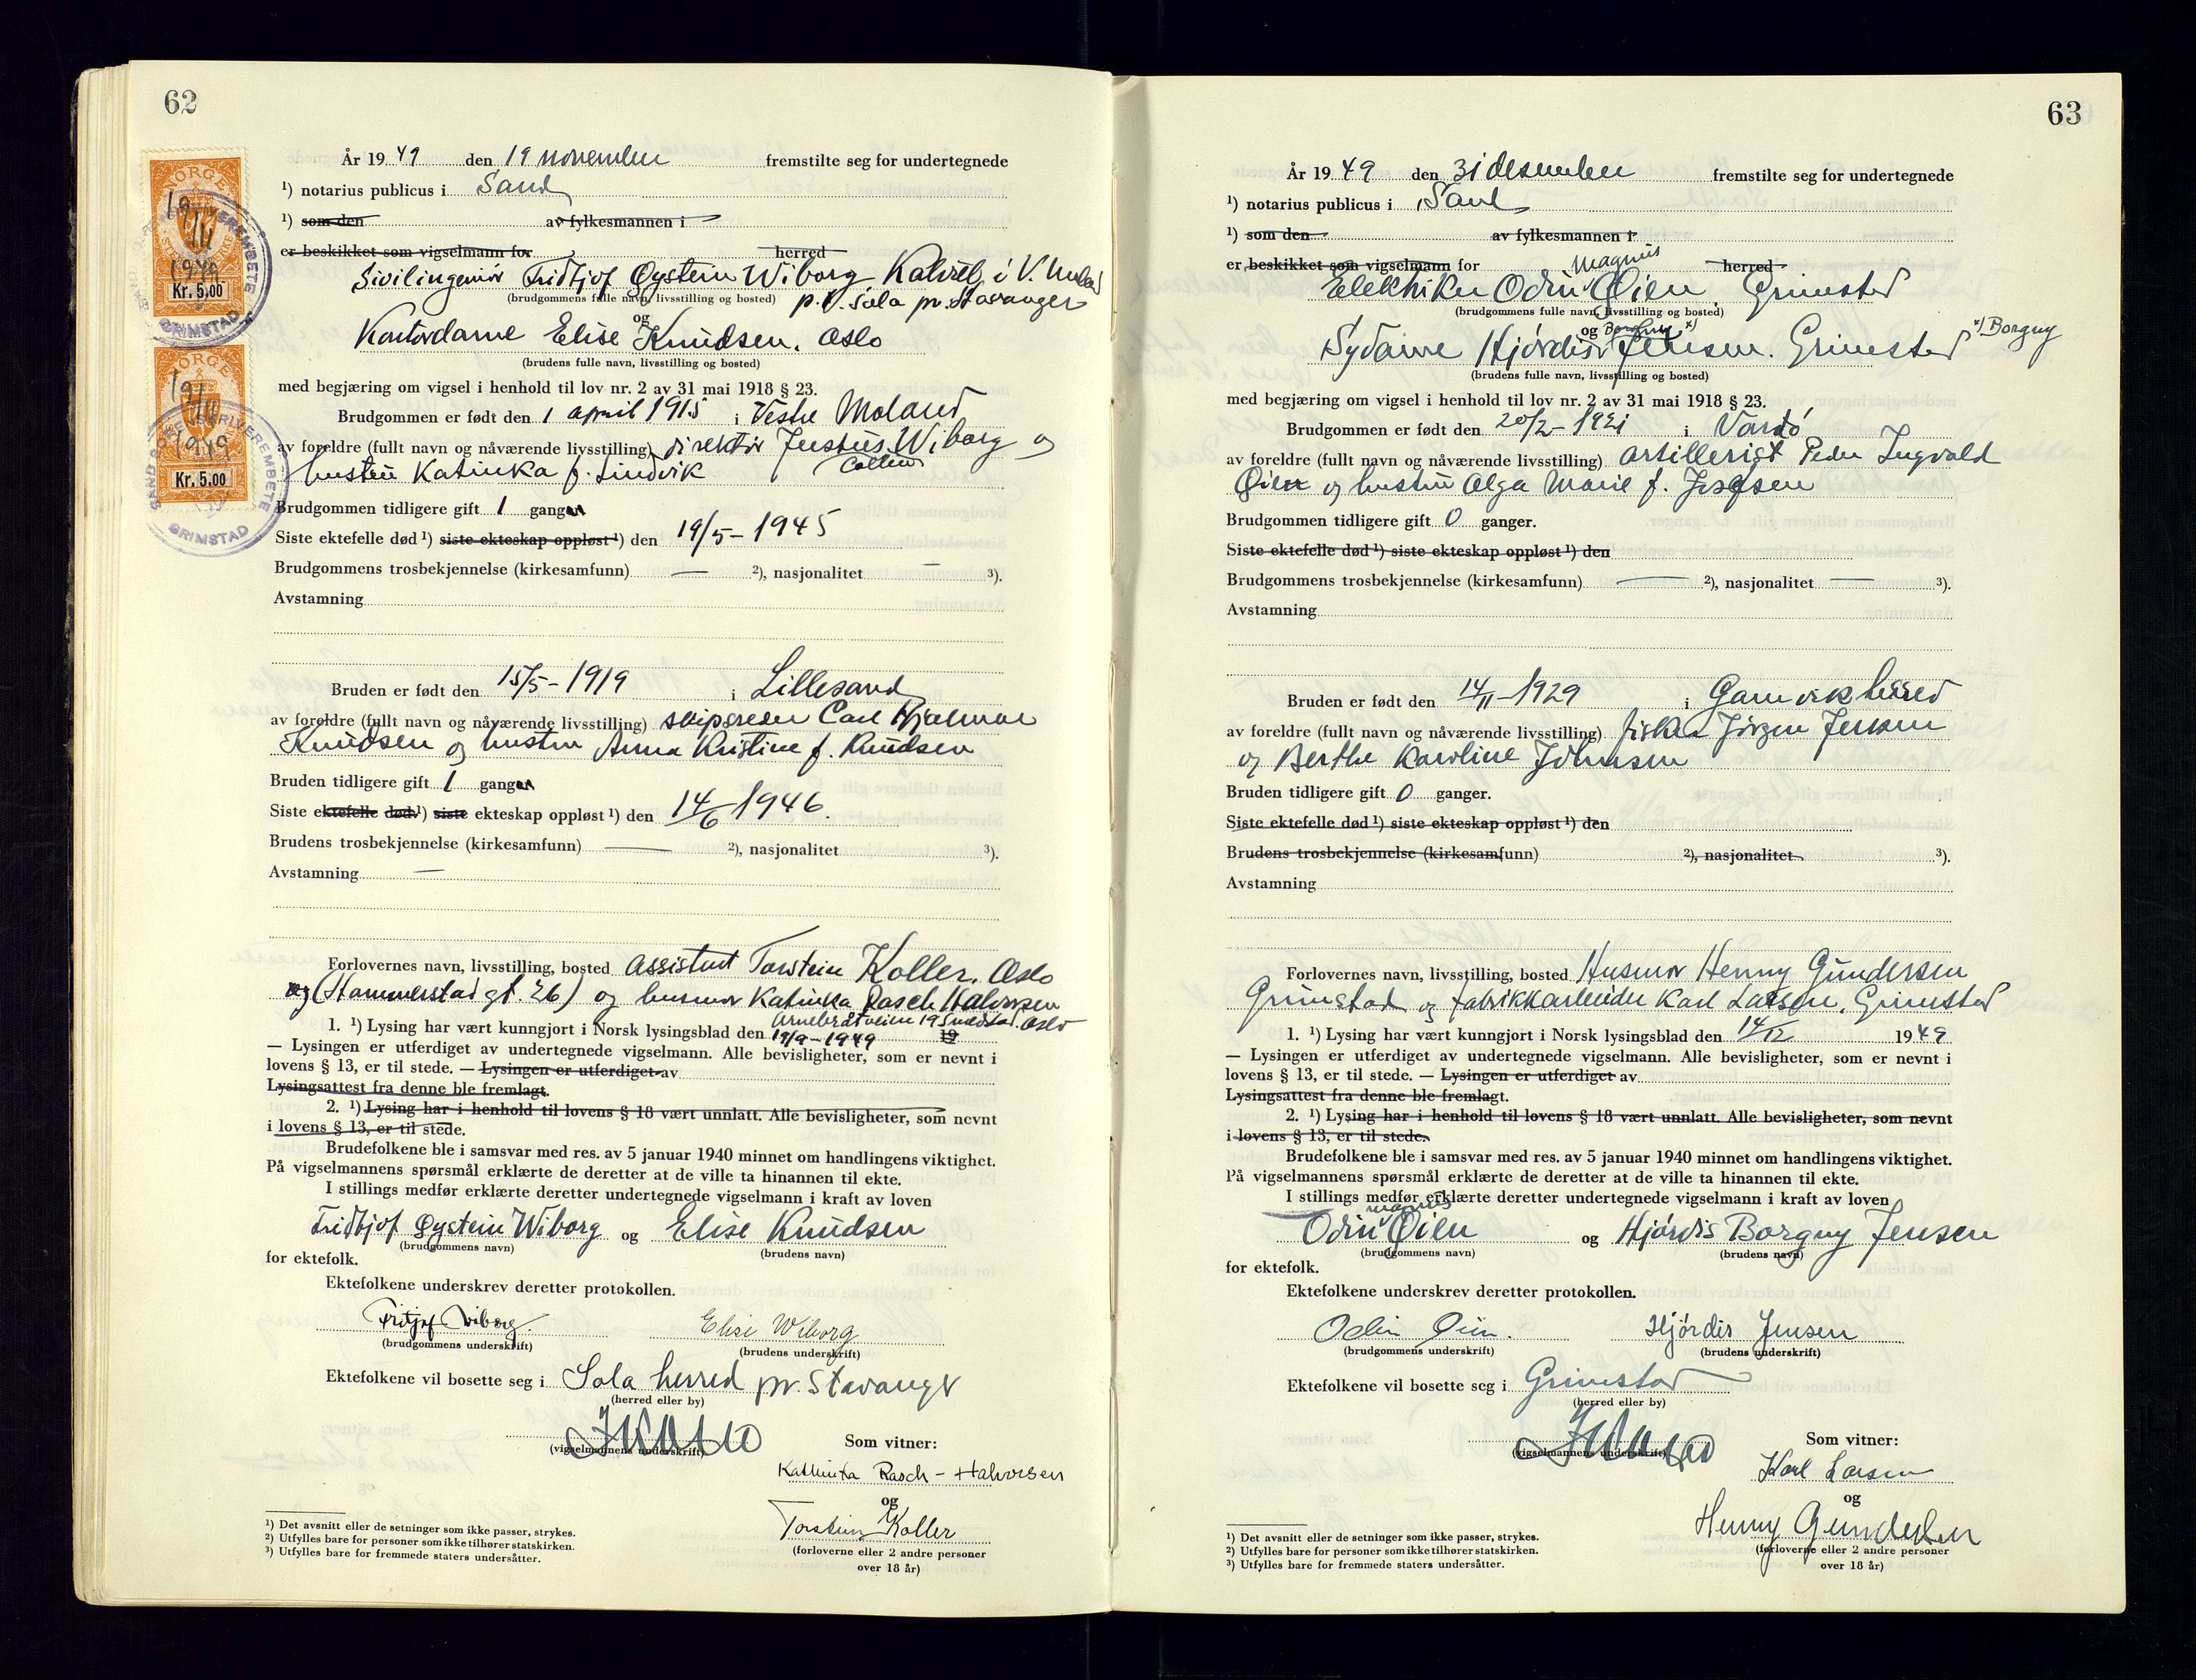 62
År 1949 den 19 november fremstilte seg for undertegnede
¹) notarius publicus i Sand
¹) som den av fylkesmannen i
er beskikket som vigselmann for herred
Sivilingeniör Fridtjof Øystein Wiborg, i V.
(brudgommens fulle navn, livsstilling og bosted) p.t. Sola pr. Stavanger
og
Kontordame Elise Knudsen, Oslo
(brudens fulle navn, livsstilling og bosted)
med begjæring om vigsel i henhold til lov nr. 2 av 31 mai 1918 § 23.
Brudgommen er født den 1 april 1915 i Vestre Moland
av foreldre (fullt navn og nåværende livsstilling) direktör Justus Wiborg og
Collin
hustru Katinka f. Lindvik
Brudgommen tidligere gift 1 gang
Siste ektefelle død ¹) siste ekteskap oppløst ¹) den 19/5 - 1945
Brudgommens trosbekjennelse (kirkesamfunn) — ²), nasjonalitet — ³).
Avstamning
Bruden er født den 15/5 - 1919 i Lillesand
av foreldre (fullt navn og nåværende livsstilling) skipsreder Carl Hjalmar
Knudsen og hustru Anna Kristine f. Knudsen
Bruden tidligere gift 1 gang
Siste ektefelle død ¹) siste ekteskap oppløst ¹) den 14/6 1946.
Brudens trosbekjennelse (kirkesamfunn) — ²), nasjonalitet ³).
Avstamning —
Forlovernes navn, livsstilling, bosted Assistent Torstein Koller, Oslo
(Hammerstadgt. 26) og husmor Katinka Rasch Halvorsen
Arnebråtveien 19 Oslo
1. ¹) Lysing har vært kunngjort i Norsk lysingsblad den 19/9 - 1949 19
— Lysingen er utferdiget av undertegnede vigselmann. Alle bevisligheter, som er nevnt i
lovens § 13, er til stede. — Lysingen er utferdiget av
Lysingsattest fra denne ble fremlagt.
2. ¹) Lysing har i henhold til lovens § 18 vært unnlatt. Alle bevisligheter, som nevnt
i lovens § 13, er til stede.
Brudefolkene ble i samsvar med res. av 5 januar 1940 minnet om handlingens viktighet.
På vigselmannens spørsmål erklærte de deretter at de ville ta hinannen til ekte.
I stillings medfør erklærte deretter undertegnede vigselmann i kraft av loven
Fridtjof Øystein Wiborg og Elise Knudsen
(brudgommens navn) (brudens navn)
for ektefolk.
Ektefolkene underskrev deretter protokollen.
Fritjof Wiborg Elise Wiborg
(brudgommens underskrift) (brudens underskrift)
Ektefolkene vil bosette seg i Sola herred pr. Stavanger
(herred eller by)
(vigselmannens underskrift)
Som vitner:
Kathinka Rasch-Halvorsen
og
Torstein Koller
(forloverne eller 2 andre personer
over 18 år)
¹) Det avsnitt eller de setninger som ikke passer, strykes.
²) Utfylles bare for personer som ikke tilhører statskirken.
³) Utfylles bare for fremmede staters undersåtter.
NORGE
19/11
1949
Kr. 5.00
GRIMSTAD
NORGE
19/11
1949
Kr. 5.00
SAND SORENSKRIVEREMBETE
GRIMSTAD
63
År 1949 den 31 desember fremstilte seg for undertegnede
¹) notarius publicus i Sand
¹) som den av fylkesmannen i
er beskikket som vigselmann for herred
Magnus
Elektriker Odin Øien, Grimstad
(brudgommens fulle navn, livsstilling og bosted)
og Borgny x) x) Borgny
Sydame Hjördis Jensen. Grimstad
(brudens fulle navn, livsstilling og bosted)
med begjæring om vigsel i henhold til lov nr. 2 av 31 mai 1918 § 23.
Brudgommen er født den 20/2 - 1921 i Vardö
av foreldre (fullt navn og nåværende livsstilling) artillerist Peder Ingvald
Øien og hustru Olga Marie f. Josefsen
Brudgommen tidligere gift 0 ganger.
Siste ektefelle død ¹) siste ekteskap oppløst ¹) den
Brudgommens trosbekjennelse (kirkesamfunn) — ²), nasjonalitet — ³).
Avstamning
Bruden er født den 14/11 - 1929 i Gamvik herred
av foreldre (fullt navn og nåværende livsstilling) fisker Jörgen Jensen
og Berthe Karoline Johnsen
Bruden tidligere gift 0 ganger.
Siste ektefelle død ¹) siste ekteskap oppløst ¹) den
Brudens trosbekjennelse (kirkesamfunn) ²), nasjonalitet ³).
Avstamning
Forlovernes navn, livsstilling, bosted Husmor Henny Gundersen
Grimstad og fabrikkarbeider Karl Larsen, Grimstad
1. ¹) Lysing har vært kunngjort i Norsk lysingsblad den 14/12 1949
— Lysingen er utferdiget av undertegnede vigselmann. Alle bevisligheter, som er nevnt i
lovens § 13, er til stede. — Lysingen er utferdiget av
Lysingsattest fra denne ble fremlagt.
2. ¹) Lysing har i henhold til lovens § 18 vært unnlatt. Alle bevisligheter, som nevnt
i lovens § 13, er til stede.
Brudefolkene ble i samsvar med res. av 5 januar 1940 minnet om handlingens viktighet.
På vigselmannens spørsmål erklærte de deretter at de ville ta hinannen til ekte.
I stillings medfør erklærte deretter undertegnede vigselmann i kraft av loven
Magnus
Odin Øien og Hjördis Borgny Jensen
(brudgommens navn) (brudens navn)
for ektefolk.
Ektefolkene underskrev deretter protokollen.
Odin Øien. Hjördis Jensen
(brudgommens underskrift) (brudens underskrift)
Ektefolkene vil bosette seg i Grimstad
(herred eller by)
(vigselmannens underskrift)
Som vitner:
Karl Larsen
og
Henny Gundersen
(forloverne eller 2 andre personer
over 18 år)
¹) Det avsnitt eller de setninger som ikke passer, strykes.
²) Utfylles bare for personer som ikke tilhører statskirken.
³) Utfylles bare for fremmede staters undersåtter.